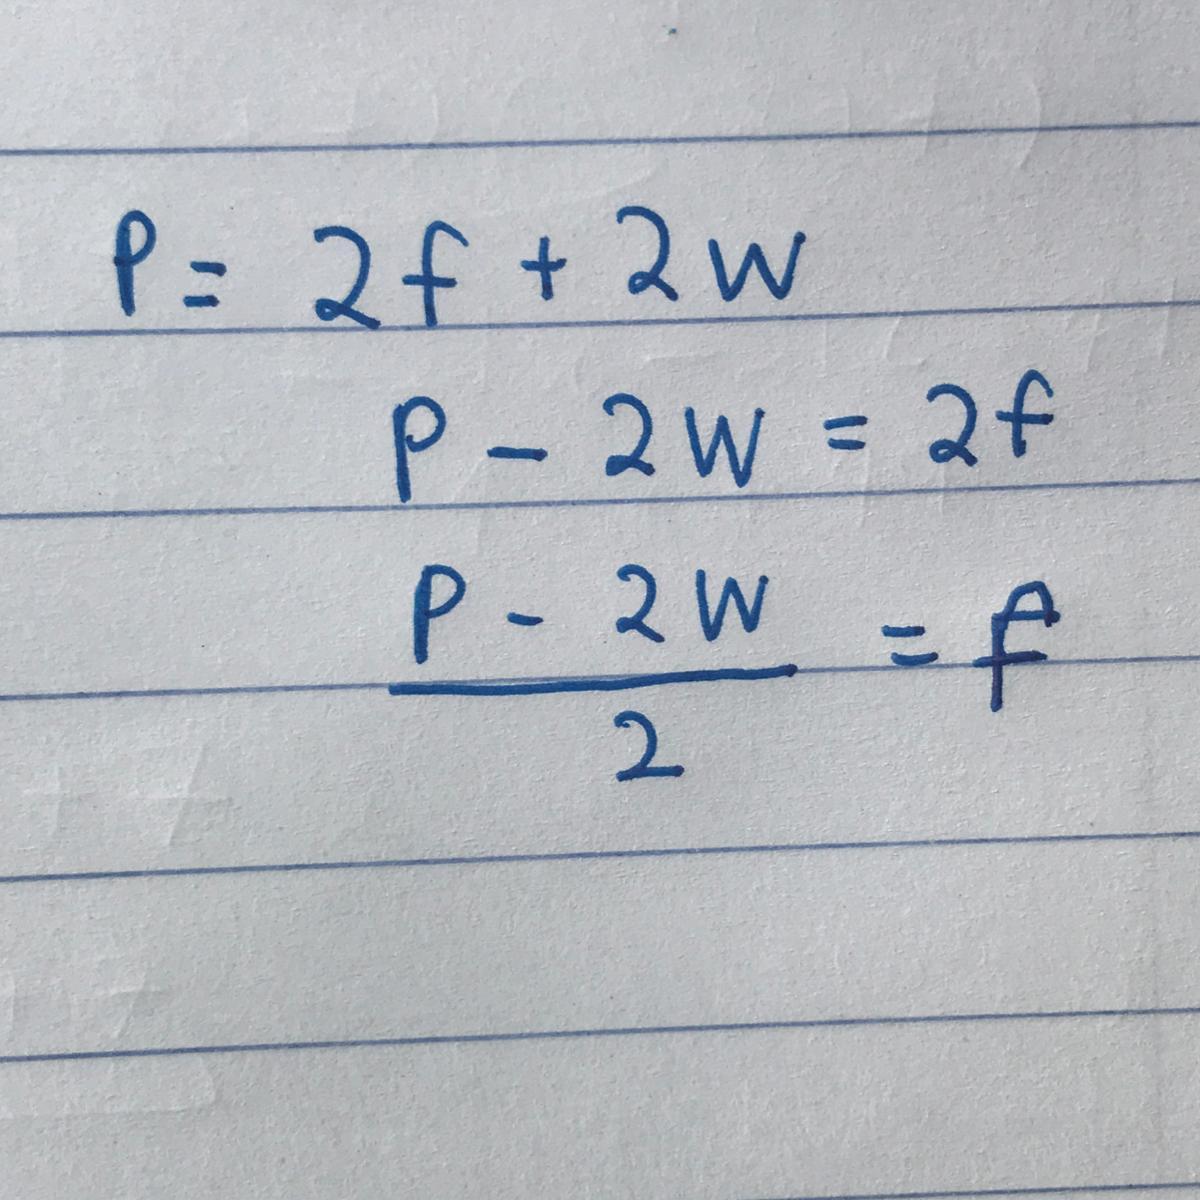 P = 2f + 2w
P - 2w = 2f
P - 2w
2
= f